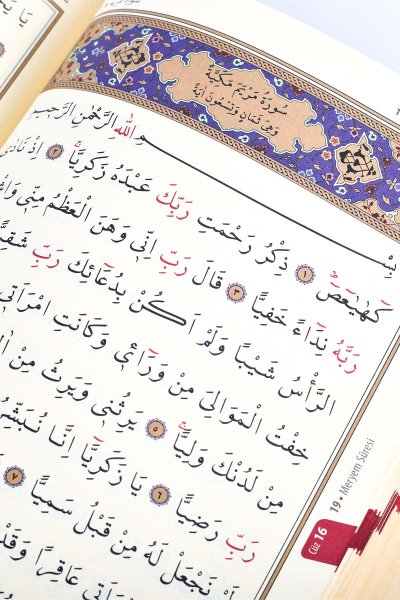 سُورَةُ مَرْيَمَ مَكِّيَّةٌ
وَهِيَ ثَمَانٍ وَتِسْعُونَ اٰيَةً
بِسْمِ اللّٰهِ الرَّحْمٰنِ الرَّحِيمِ
كٓهٰيٰعٓصٓ ١ ذِكْرُ رَحْمَتِ رَبِّكَ عَبْدَهُ زَكَرِيَّا ٢ اِذْ نَادٰى
رَبَّهُ نِدَٓاءً خَفِيًّا ٣ قَالَ رَبِّ اِنّٖى وَهَنَ الْعَظْمُ مِنّٖى
الرَّأْسُ شَيْبًا وَلَمْ اَكُنْ بِدُعَٓائِكَ رَبِّ شَقِيًّا
خِفْتُ الْمَوَالِىَ مِنْ وَرَٓاءٖى وَكَانَتِ امْرَاَتٖى
مِنْ لَدُنْكَ وَلِيًّا ٥ يَرِثُنٖى وَيَرِثُ مِنْ
رَبِّ رَضِيًّا ٦ يَا زَكَرِيَّٓا اِنَّا نُبَشِّرُكَ
لَمْ نَجْعَلْ لَهُ مِنْ قَبْلُ سَمِيًّا ٧
عَاقِرًا وَقَدْ
Cüz 16
19 • Meryem Sûresi